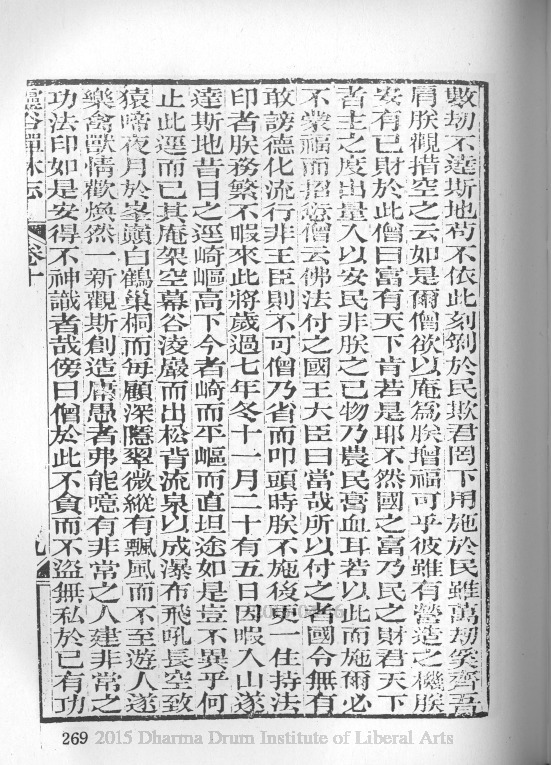 數劫不達斯地苟不依此刻剝於民欺君罔下用施於民雖萬劫奚齊吾
肩朕觀措空之云如是爾僧欲以庵為朕增福可乎彼雖有營造之機朕
安有已財於此僧曰富有天下肯若是耶不然國之富乃民之財君天下
者主之度出量入以安民非朕之已物乃農民膏血耳若以此而施爾必
不蒙福而招愆僧云佛法付之國王大臣曰當哉所以付之者國令無有
敢謗德化流行非王臣則不可僧乃省而叩頭時朕不施後更一住持法
印者朕務繁不暇來此將歲過七年冬十一月二十有五日因暇入山遂
達斯地昔日之逕崎嶇高下今者崎而平嶇而直坦途如是豈不異乎何
止此逕而已其庵架空幕谷淩巖而出松背流泉以成瀑布飛吼長空致
猿啼夜月於峯巔白鶴巢桐而每顧深隱翠微縱有飄風而不至遊人遂
樂禽獸情歡煥然一新觀斯創造庸愚者弗能噫有非常之人建非常之
功法印如是安得不神識者哉傍曰僧於此不貪而不盜無私於已有功
廬谷禪林志 卷十 九
269 2015 Dharma Drum Institute of Liberal Arts